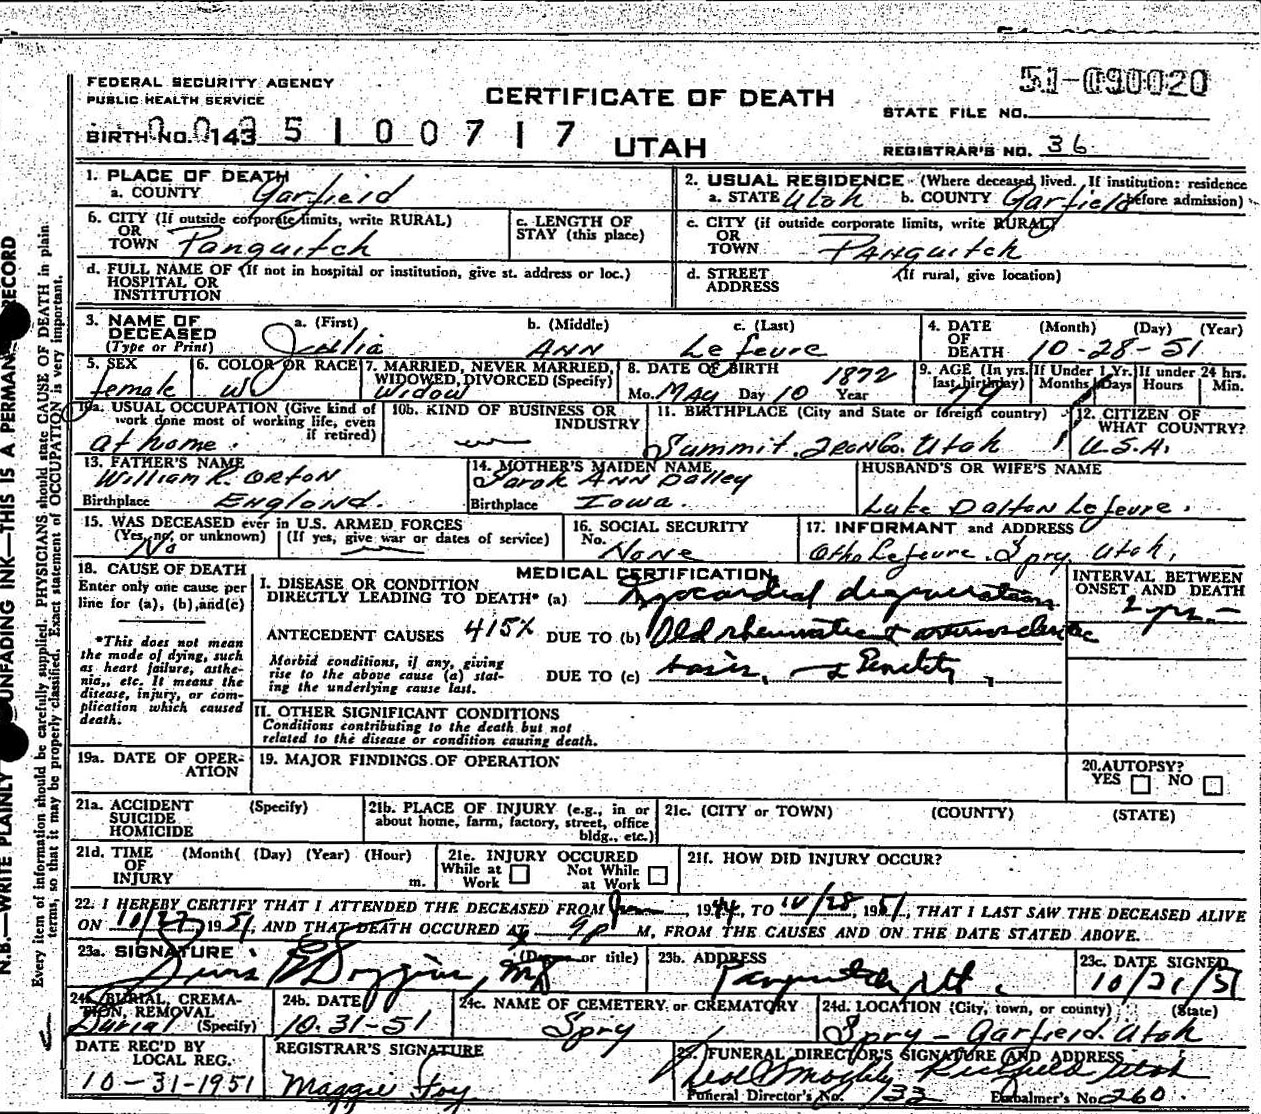 FEDERAL SECURITY AGENCY
PUBLIC HEALTH SERVICE
CERTIFICATE OF DEATH
51-090020
STATE FILE NO.
BIRTH NO. 143 5100717
UTAH
REGISTRAR'S NO. 36
1. PLACE OF DEATH
a. COUNTY Garfield
2. USUAL RESIDENCE (Where deceased lived. If institution: residence before admission)
a. STATE Utah b. COUNTY Garfield
b. CITY (If outside corporate limits, write RURAL)
OR
TOWN Panguitch
c. LENGTH OF
STAY (this place)
c. CITY (if outside corporate limits, write RURAL)
OR
TOWN Panguitch
d. FULL NAME OF (If not in hospital or institution, give st. address or loc.)
HOSPITAL OR
INSTITUTION
d. STREET (If rural, give location)
ADDRESS
3. NAME OF
DECEASED
(Type or Print)
a. (First) b. (Middle) c. (Last)
Julia Ann LeFevre
4. DATE (Month) (Day) (Year)
OF
DEATH 10-28-51
5. SEX
female
6. COLOR OR RACE
W
7. MARRIED, NEVER MARRIED,
WIDOWED, DIVORCED (Specify)
Widow
8. DATE OF BIRTH
Mo. May Day 10 Year 1872
9. AGE (In yrs. last birthday) 79
If Under 1 Yr. Months Days
If under 24 hrs. Hours Min.
10a. USUAL OCCUPATION (Give kind of
work done most of working life, even
if retired)
at home.
10b. KIND OF BUSINESS OR
INDUSTRY
11. BIRTHPLACE (City and State or foreign country)
Summit. Iron Co. Utah
12. CITIZEN OF
WHAT COUNTRY?
U.S.A.
13. FATHER'S NAME
William R. Orton
Birthplace England.
14. MOTHER'S MAIDEN NAME
Sarah Ann Dalley
Birthplace Iowa.
HUSBAND'S OR WIFE'S NAME
Luke Dalton LeFevre.
15. WAS DECEASED ever in U.S. ARMED FORCES
(Yes, no, or unknown) (If yes, give war or dates of service)
No
16. SOCIAL SECURITY
No. None
17. INFORMANT and ADDRESS
Otho LeFevre. Spry, Utah.
18. CAUSE OF DEATH
Enter only one cause per
line for (a), (b), and (c)
*This does not mean
the mode of dying, such
as heart failure, asthe-
nia,, etc. It means the
disease, injury, or com-
plication which caused
death.
MEDICAL CERTIFICATION
I. DISEASE OR CONDITION
DIRECTLY LEADING TO DEATH* (a) Myocardial degeneration
ANTECEDENT CAUSES 415X DUE TO (b) Old rheumatic & arteriosclerotic
Morbid conditions, if any, giving
rise to the above cause (a) stat-
ing the underlying cause last.
DUE TO (c) basis, & Senility,
INTERVAL BETWEEN
ONSET AND DEATH
2 yrs.
II. OTHER SIGNIFICANT CONDITIONS
Conditions contributing to the death but not
related to the disease or condition causing death.
19a. DATE OF OPER-
ATION
19. MAJOR FINDINGS OF OPERATION
20. AUTOPSY?
YES NO
21a. ACCIDENT (Specify)
SUICIDE
HOMICIDE
21b. PLACE OF INJURY (e.g., in or
about home, farm, factory, street, office
bldg., etc.)
21c. (CITY or TOWN) (COUNTY) (STATE)
21d. TIME (Month( (Day) (Year) (Hour)
OF
INJURY m.
21e. INJURY OCCURED
While at Work Not While at Work
21f. HOW DID INJURY OCCUR?
22. I HEREBY CERTIFY THAT I ATTENDED THE DECEASED FROM 1944, TO 10/28, 1951, THAT I LAST SAW THE DECEASED ALIVE
ON 10/27 1951, AND THAT DEATH OCCURED AT 9 p M, FROM THE CAUSES AND ON THE DATE STATED ABOVE.
23a. SIGNATURE (Degree or title)
Duggins, MD
23b. ADDRESS
Panguitch, Ut.
23c. DATE SIGNED
10/31/51
24a. BURIAL, CREMA-
TION, REMOVAL
(Specify)
Burial
24b. DATE
10-31-51
24c. NAME OF CEMETERY or CREMATORY
Spry
24d. LOCATION (City, town, or county) (State)
Spry - Garfield. Utah
DATE REC'D BY
LOCAL REG.
10-31-1951
REGISTRAR'S SIGNATURE
Maggie Foy
25. FUNERAL DIRECTOR'S SIGNATURE AND ADDRESS
Richfield Utah
Funeral Director's No. 133 Embalmer's No. 260.
N.B.—WRITE PLAINLY UNFADING INK—THIS IS A PERMANENT RECORD
Every item of information should be carefully supplied. PHYSICIANS should state CAUSE OF DEATH in plain
terms, so that it may be properly classified. Exact statement of OCCUPATION is very important.